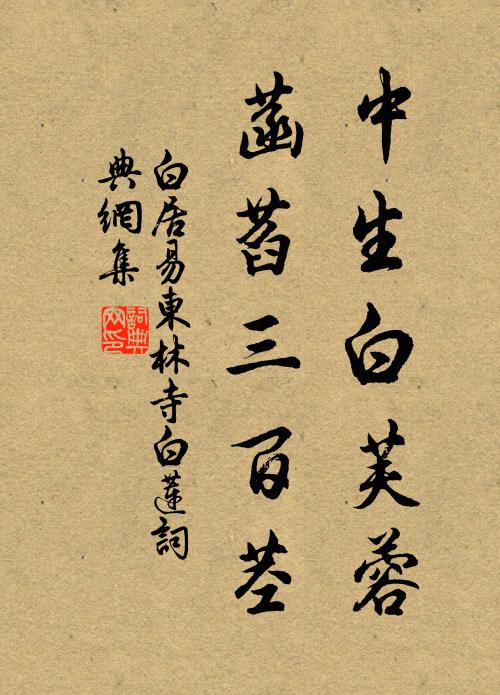 中生白芙蓉
菡萏三百莖
白居易東林寺白蓮詞
典網集
詞典
网印